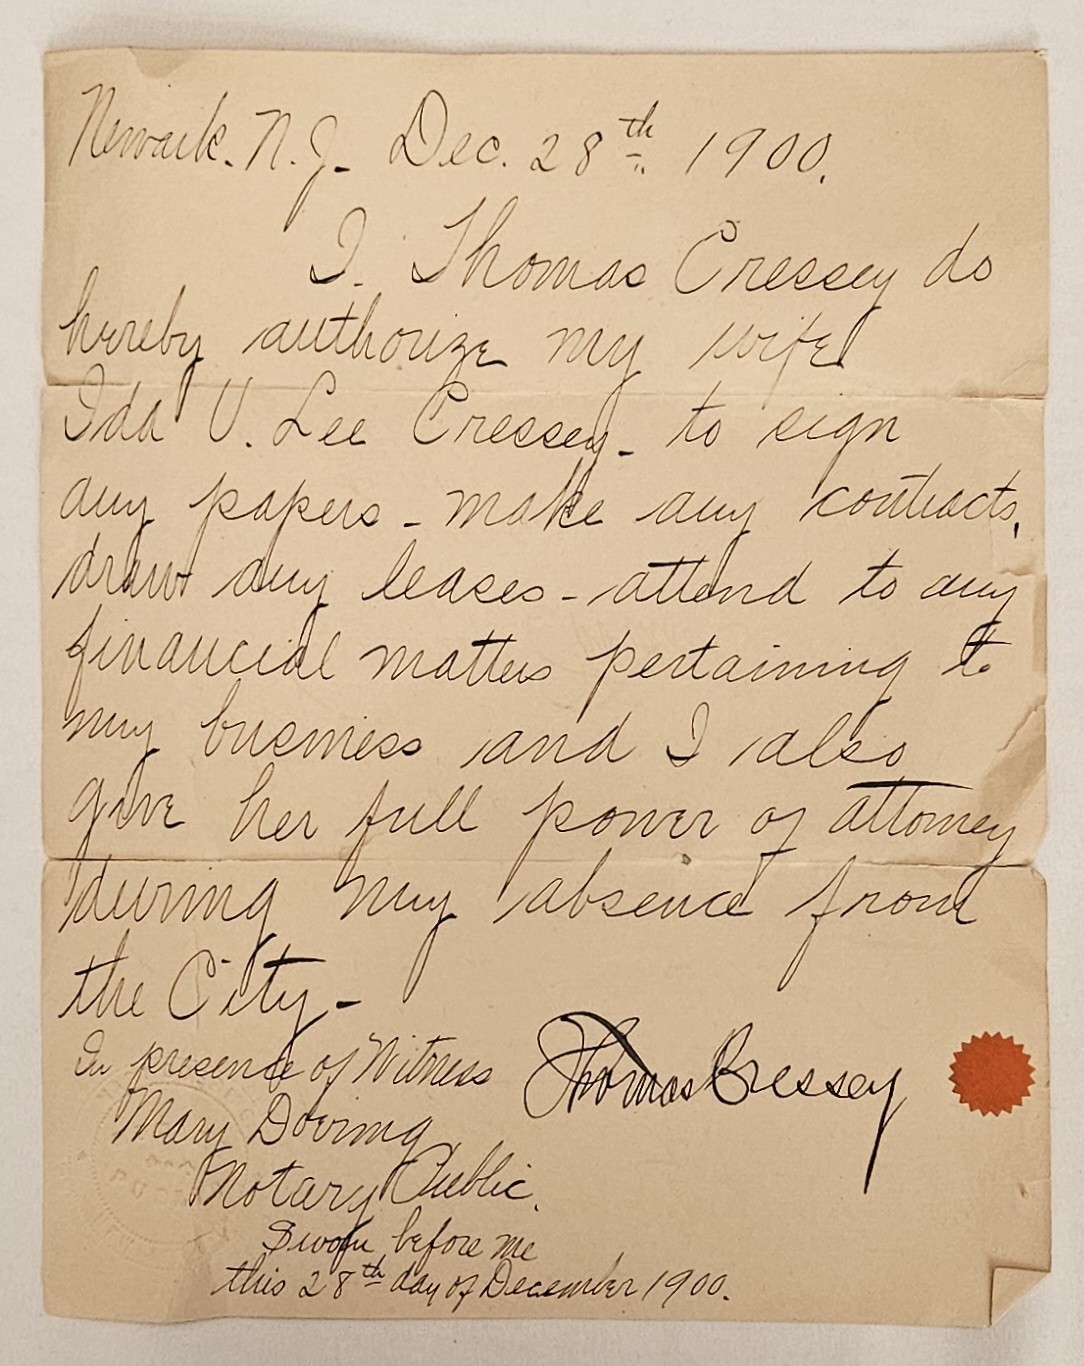 Newark. N.J. Dec. 28th 1900.
I. Thomas Cressey do
hereby authorize my wife
Ida V. Lee Cressey - to sign
any papers - make any contracts,
draw any leases - attend to any
financial matters pertaining to
my business and I also
give her full power of attorney
during my absence from
the City -
In presence of Witness
Thomas Cressey
Mary Doving
Notary Public.
Sworn before me
this 28th day of December 1900.